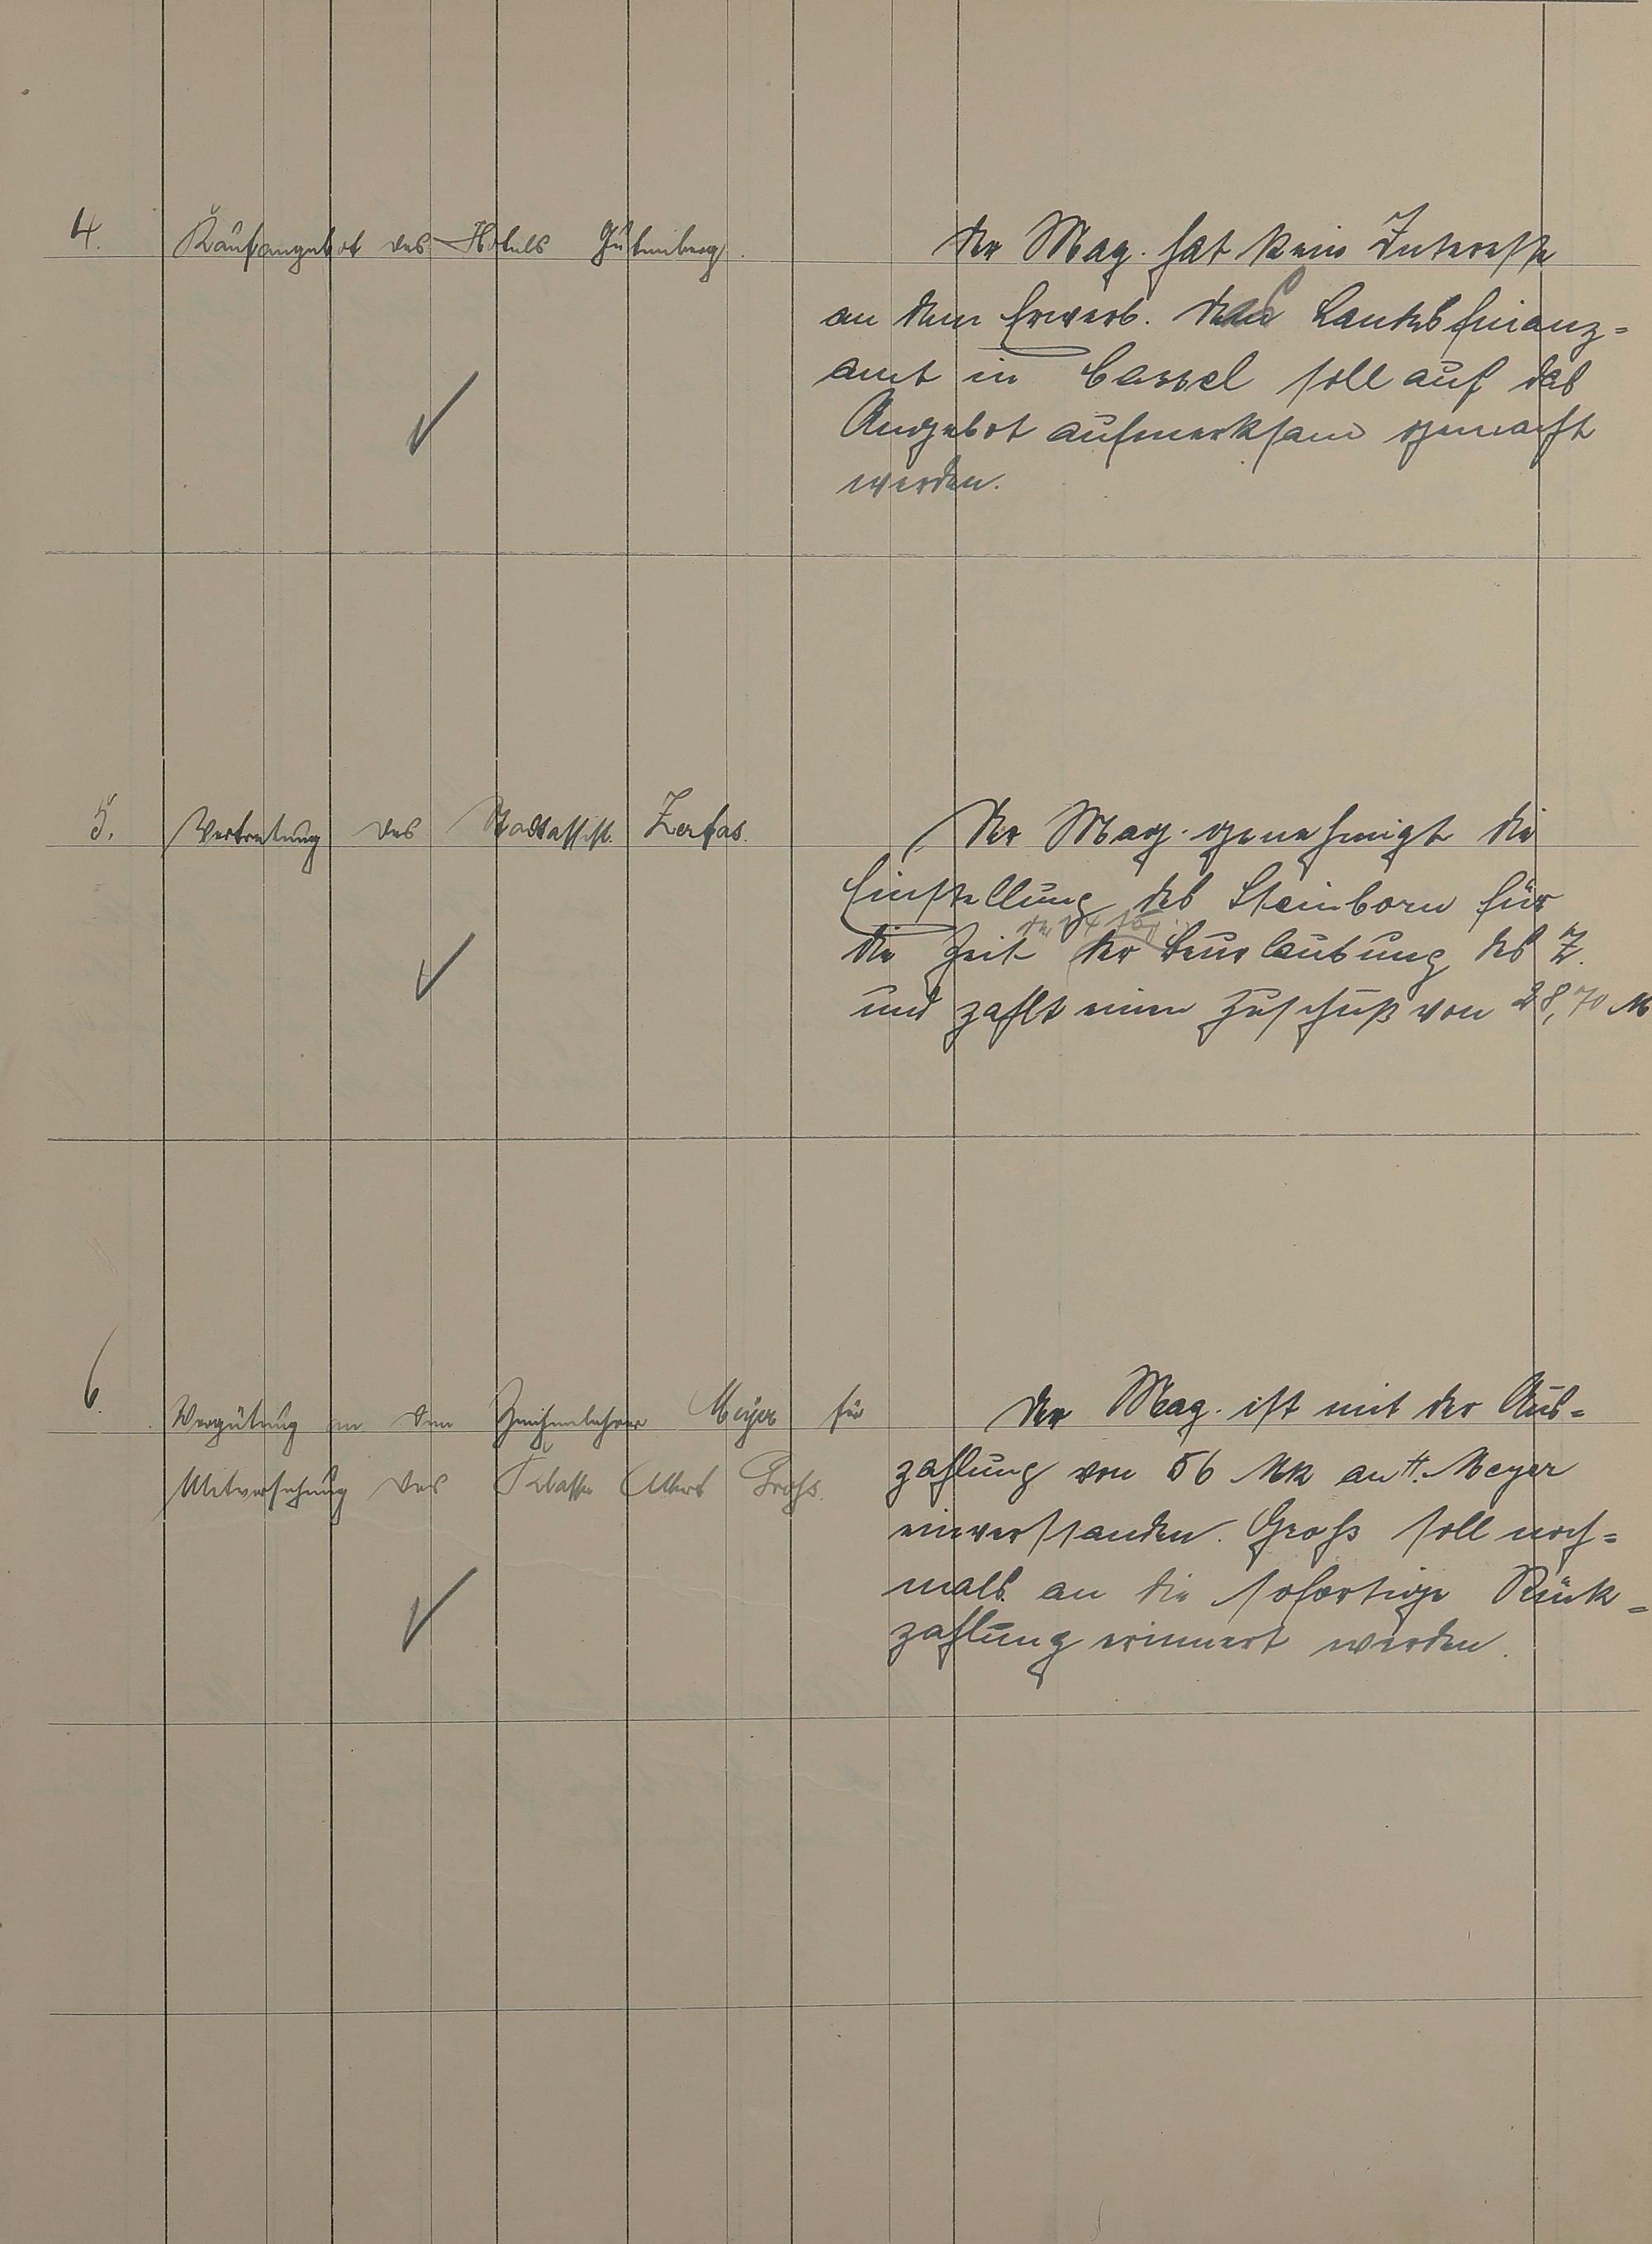 4. Kaufangebot des Hotels Gutenberg.
Der Mag. hat kein Interesse
an dem Erwerb. Das Landesfinanz=
amt in Cassel soll auf das
Angebot aufmerksam gemacht
werden.
5. Vertretung des Stadtassist. Zerfas.
Der Mag. genehmigt die
Einstellung des Steinborn für
die Zeit der Beurlaubung des Z.
und zahlt einen Zuschuß von 28,70 M
6. Vergütung an den Zeichenlehrer Meyer für
Mitversehung der Klasse Albert Groß.
Der Mag. ist mit der Aus=
zahlung von 56 Mk an H. Meyer
einverstanden. Groß soll noch=
mals an die sofortige Rück=
zahlung erinnert werden.